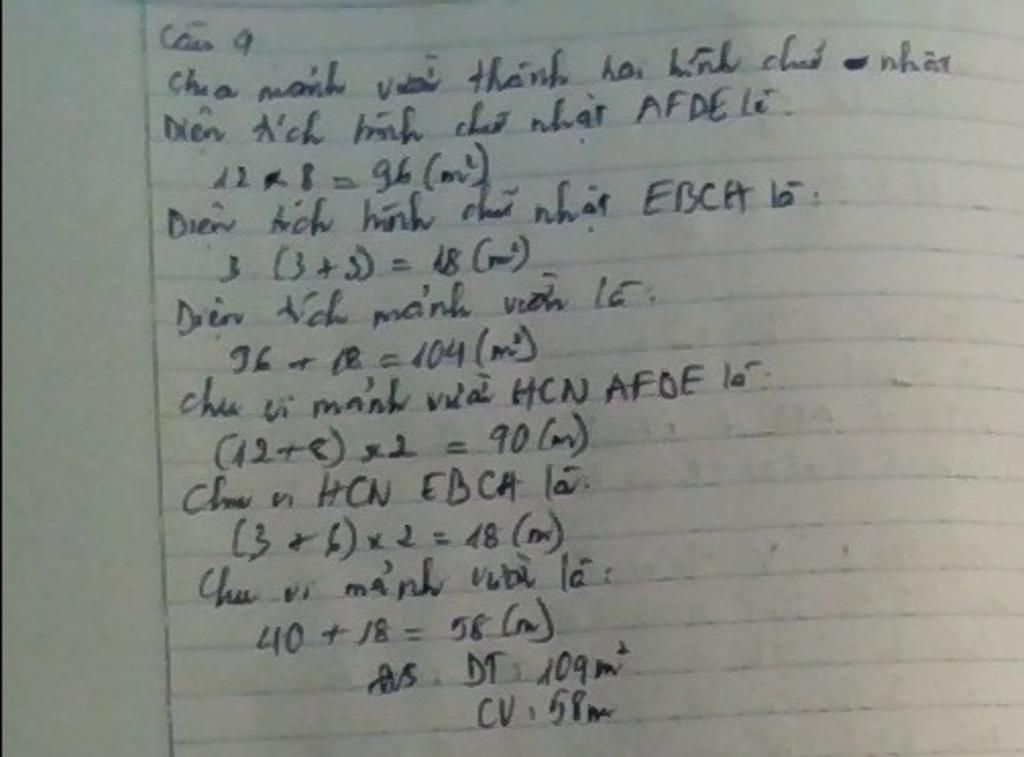 Câu 9
Chia mảnh vườn thành hai hình chữ nhật
Diện tích hình chữ nhật AFDE là:
12 x 8 = 96 (m²)
Diện tích hình chữ nhật EBCH là:
3 (3 + 3) = 18 (m²)
Diện tích mảnh vườn là:
96 + 18 = 104 (m²)
Chu vi mảnh vườn HCN AFDE là:
(12 + 8) x 2 = 90 (m)
Chu vi HCN EBCH là:
(3 + 6) x 2 = 18 (m)
Chu vi mảnh vườn là:
40 + 18 = 58 (m)
ĐS: DT: 109m²
CV: 58m